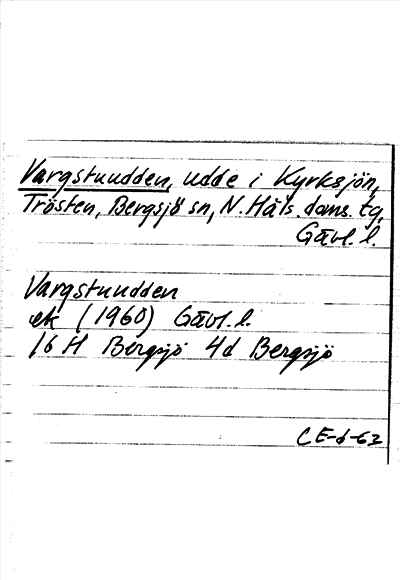 Vargstuudden, udde i Kyrksjön,
Trösten, Bergsjö sn, N. Häls. doms. tg,
Gävl. l.
Vargstuudden
ek (1960) Gävl. l.
16 H Bergsjö 4d Bergsjö
CE-6-62